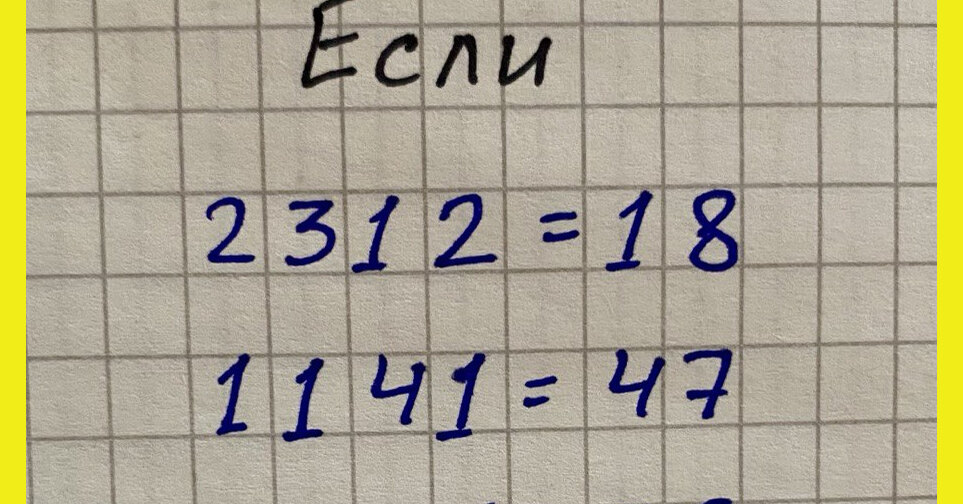 Если
2312=18
1141=47